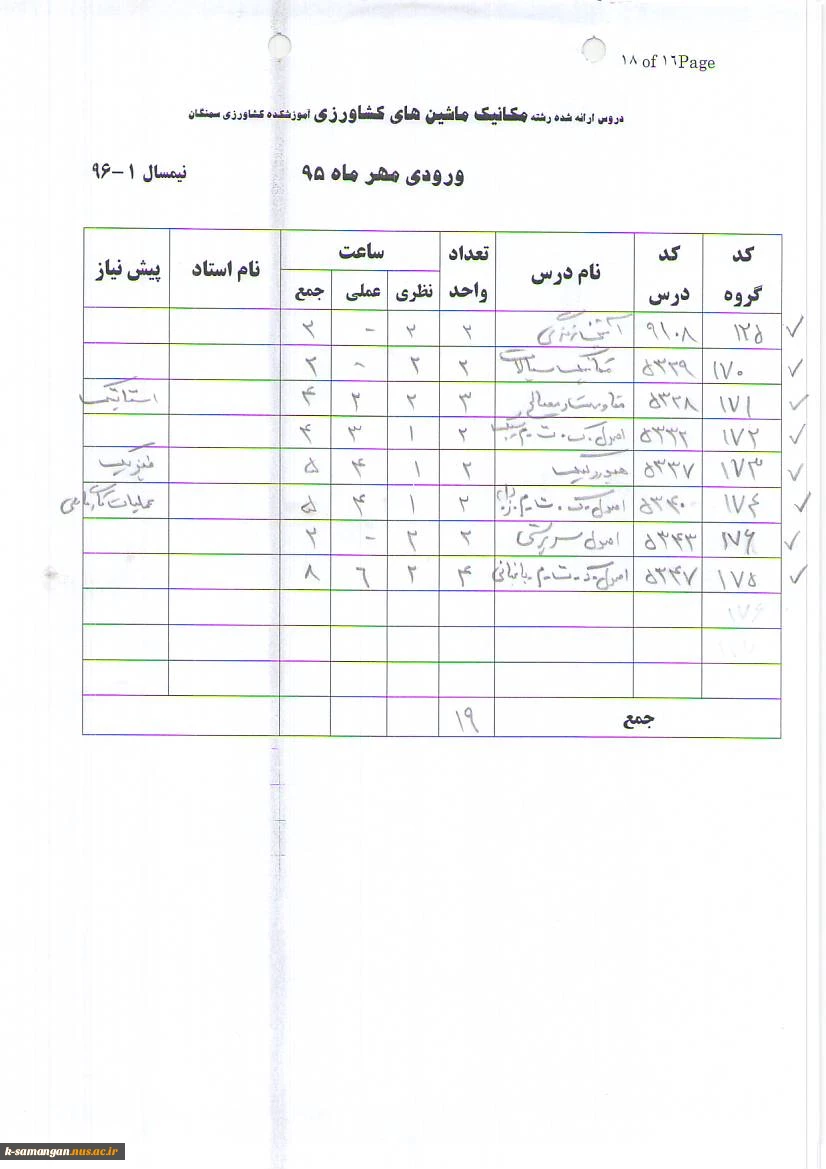 ۱۸ of ۱۶Page
دروس ارائه شده رشته مکانیک ماشین های کشاورزی آموزشکده کشاورزی سمنگان
ورودی مهر ماه ۹۵ نیمسال ۱-۹۶
کد گروه کد درس نام درس تعداد واحد ساعت نام استاد پیش نیاز
نظری عملی جمع
۱۲۵ ۹۱۰۸ ۲ ۲ - ۲
۱۷۰ ۵۳۲۹ مکانیک سیالات ۲ ۲ - ۲
۱۷۱ ۵۳۲۸ مقاومت مصالح ۳ ۲ ۲ ۴ استاتیک
۱۷۲ ۵۳۳۲ اصول ک. ت. م. ۲ ۱ ۳ ۴
۱۷۳ ۵۳۳۷ هیدرولیک ۲ ۱ ۴ ۵ فیزیک
۱۷۴ ۵۳۴۰ اصول ک. ت. م. ۲ ۱ ۴ ۵ عملیات
۱۷۶ ۵۳۴۳ اصول سرپرستی ۲ ۲ - ۲
۱۷۵ ۵۳۴۷ اصول ک. ت. م. باغبانی ۴ ۲ ۶ ۸
۱۷۶
جمع ۱۹
k-samangan.nus.ac.ir